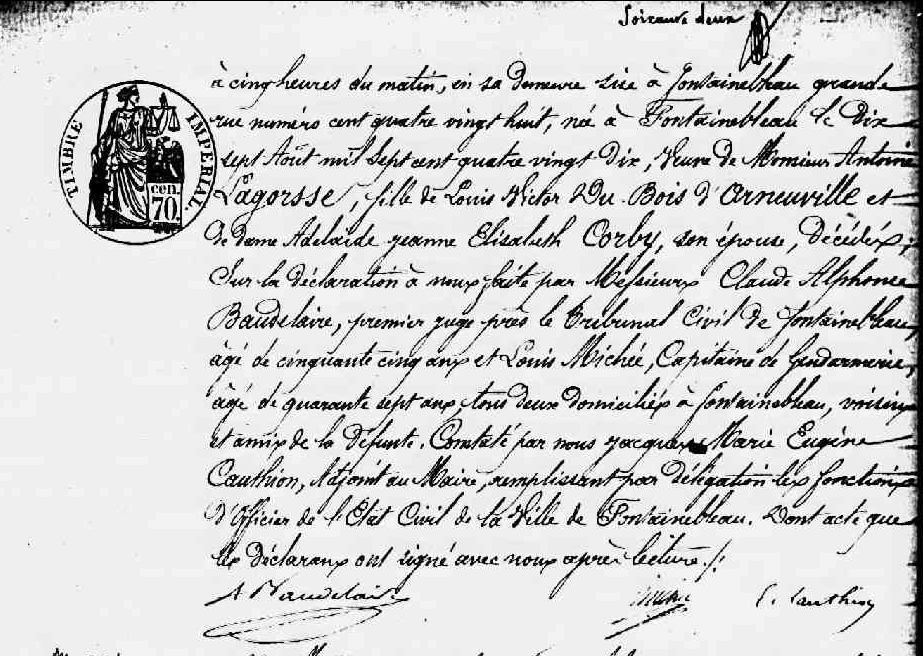 Soixante deux
à cinq heures du matin, en sa demeure sise à Fontainebleau grande
rue numéro cent quatre vingt huit, née à Fontainebleau le Dix
sept Août mil sept cent quatre vingt Dix, Veuve de Monsieur Antoine
TIMBRE IMPERIAL
Lagorsse, fille de Louis Victor Du Bois d'Arneuville et
cen.
70.
de Dame Adelaïde jeanne Elisabeth Corby, son épouse, Décédés,
Sur la déclaration à nous faite par Messieurs Claude Alphonse
Baudelaire, premier juge près le Tribunal Civil de Fontainebleau,
âgé de cinquante cinq ans et Louis Michée, Capitaine de Gendarmerie,
âgé de quarante sept ans, tous deux domiciliés à Fontainebleau, voisins
et amis de la défunte. Constaté par nous Jacques Marie Eugène
Cauthion, Adjoint au Maire, remplissant par délégation les fonctions
d'Officier de l'Etat Civil de la Ville de Fontainebleau. Dont acte que
les Déclarans ont signé avec nous après lecture ./.
A Baudelaire